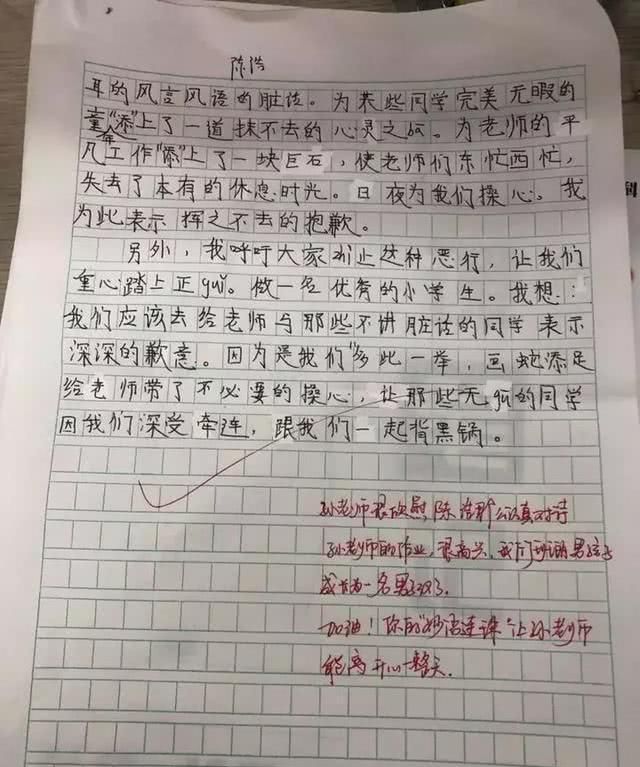 陈浩
耳的风言风语的脏话。为某些同学完美无暇的
童年"添"上了一道抹不去的心灵之
为老师的平
凡工作"添"上了一块巨石，使老师们东忙西忙，
失去了本有的休息时光。日夜为我们操心，我
为此表示挥之不去的抱歉。
另外，我呼吁大家 止这种恶行，让我们
重心踏上正guǐ。做一名优秀的小学生。我想：
我们应该去给老师与那些不讲脏话的同学表示
深深的歉意。因为是我们"多此一举，画蛇添足
给老师带了不必要的操心，让那些无gū的同学
因我们深受牵连，跟我们一起背黑锅。
孙老师很欣慰，陈浩能认真对待
孙老师的作业，很高兴，我们班的男孩
成长为一名男子汉了。
加油！你的"妙语连珠"让孙老师
能高开心一整天。